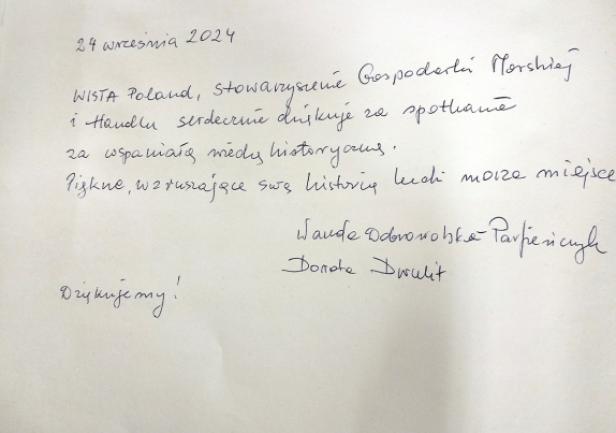 24 września 2024
WISTA Poland, Stowarzyszenie Gospodarki Morskiej
i Handlu serdecznie dziękuje za spotkanie
za wspaniałą wiedzę historyczną.
Piękne, wzruszające swą historią ludzi morza miejsce
Wanda Dobrowolska-Parfieńczyk
Dorota
Dziękujemy!